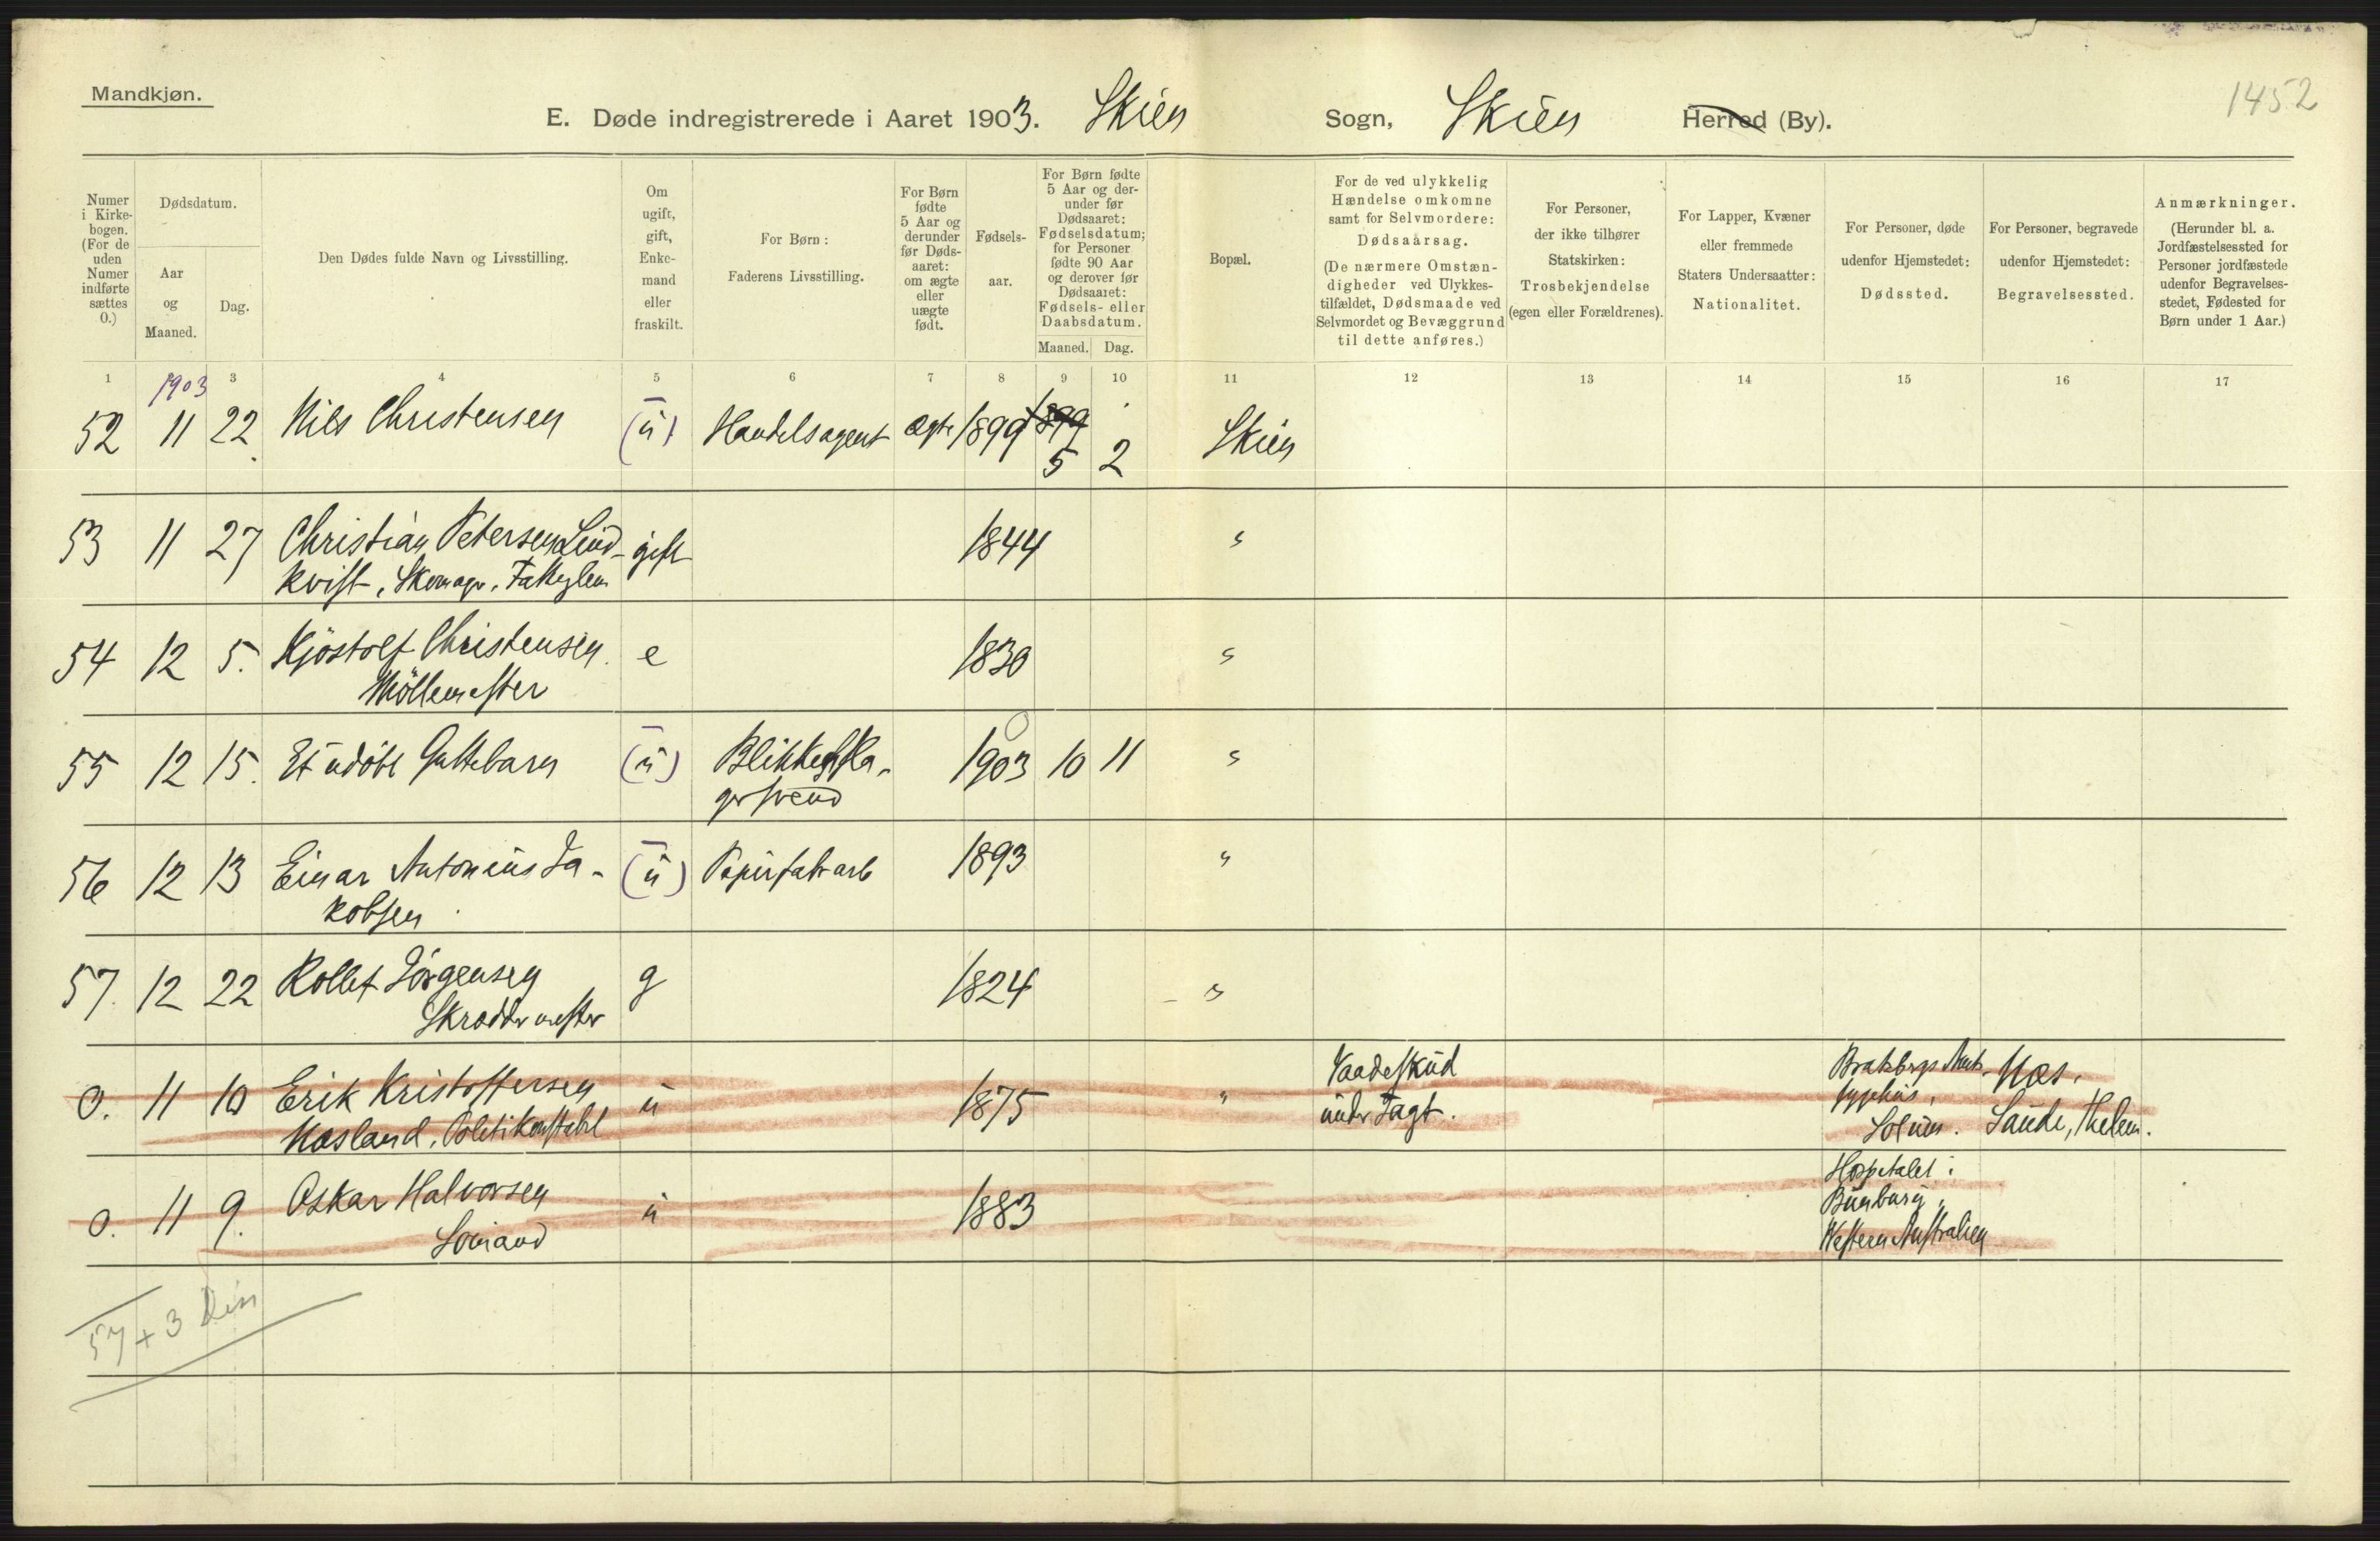 Mandkjøn.
1452
E. Døde indregistrerede i Aaret 1903. Skien Sogn, Skien Herred (By).
Numer i Kirkebogen. (For de uden Numer indførte sættes 0.)
Dødsdatum.
Aar og Maaned.
Dag.
Den Dødes fulde Navn og Livsstilling.
Om ugift, gift, Enkemand eller fraskilt.
For Børn: Faderens Livsstilling.
For Børn fødte 5 Aar og derunder før Dødsaaret: om ægte eller uægte født.
Fødselsaar.
For Børn fødte 5 Aar og derunder før Dødsaaret: Fødselsdatum; for Personer fødte 90 Aar og derover før Dødsaaret: Fødsels- eller Daabsdatum.
Maaned. Dag.
Bopæl.
For de ved ulykkelig Hændelse omkomne samt for Selvmordere: Dødsaarsag. (De nærmere Omstændigheder ved Ulykkestilfældet, Dødsmaade ved Selvmordet og Bevæggrund til dette anføres.)
For Personer, der ikke tilhører Statskirken: Trosbekjendelse (egen eller Forældrenes).
For Lapper, Kvæner eller fremmede Staters Undersaatter: Nationalitet.
For Personer, døde udenfor Hjemstedet: Dødssted.
For Personer, begravede udenfor Hjemstedet: Begravelsessted.
Anmærkninger. (Herunder bl. a. Jordfæstelsessted for Personer jordfæstede udenfor Begravelsesstedet, Fødested for Børn under 1 Aar.)
1 3 4 5 6 7 8 9 10 11 12 13 14 15 16 17
1903
52 11 22. Nils Christensen (u) Handelsagent ægte 1899 1899 Skien
5 2
53 11 27 Christian Petersen Lind- gift 1844 "
kvist, Skomager,
54 12 5. Kjøstolf Christensen. e 1830 "
Möllemester
55 12 15. Et udöbt Guttebarn (u) Blikkenslager- 1903 10 11 "
svend
56 12 13 Einar Antonius Ja- (u) Papirfabrarb 1893 "
kobsen
57. 12 22 Rollef Jörgensen g 1824 "
Skræddermester
0. 11 10 Erik Kristoffersen u 1875 " Vaadeskud Bratsbergs Amts- Næs,
Næsland, Politikonstabel under Jagt. sygehus, Solum. Saude, Thelem.
0. 11 9. Oskar Halvorsen u 1883 Hospitalet i
Sömand Bunbury,
Western Australien
57 + 3